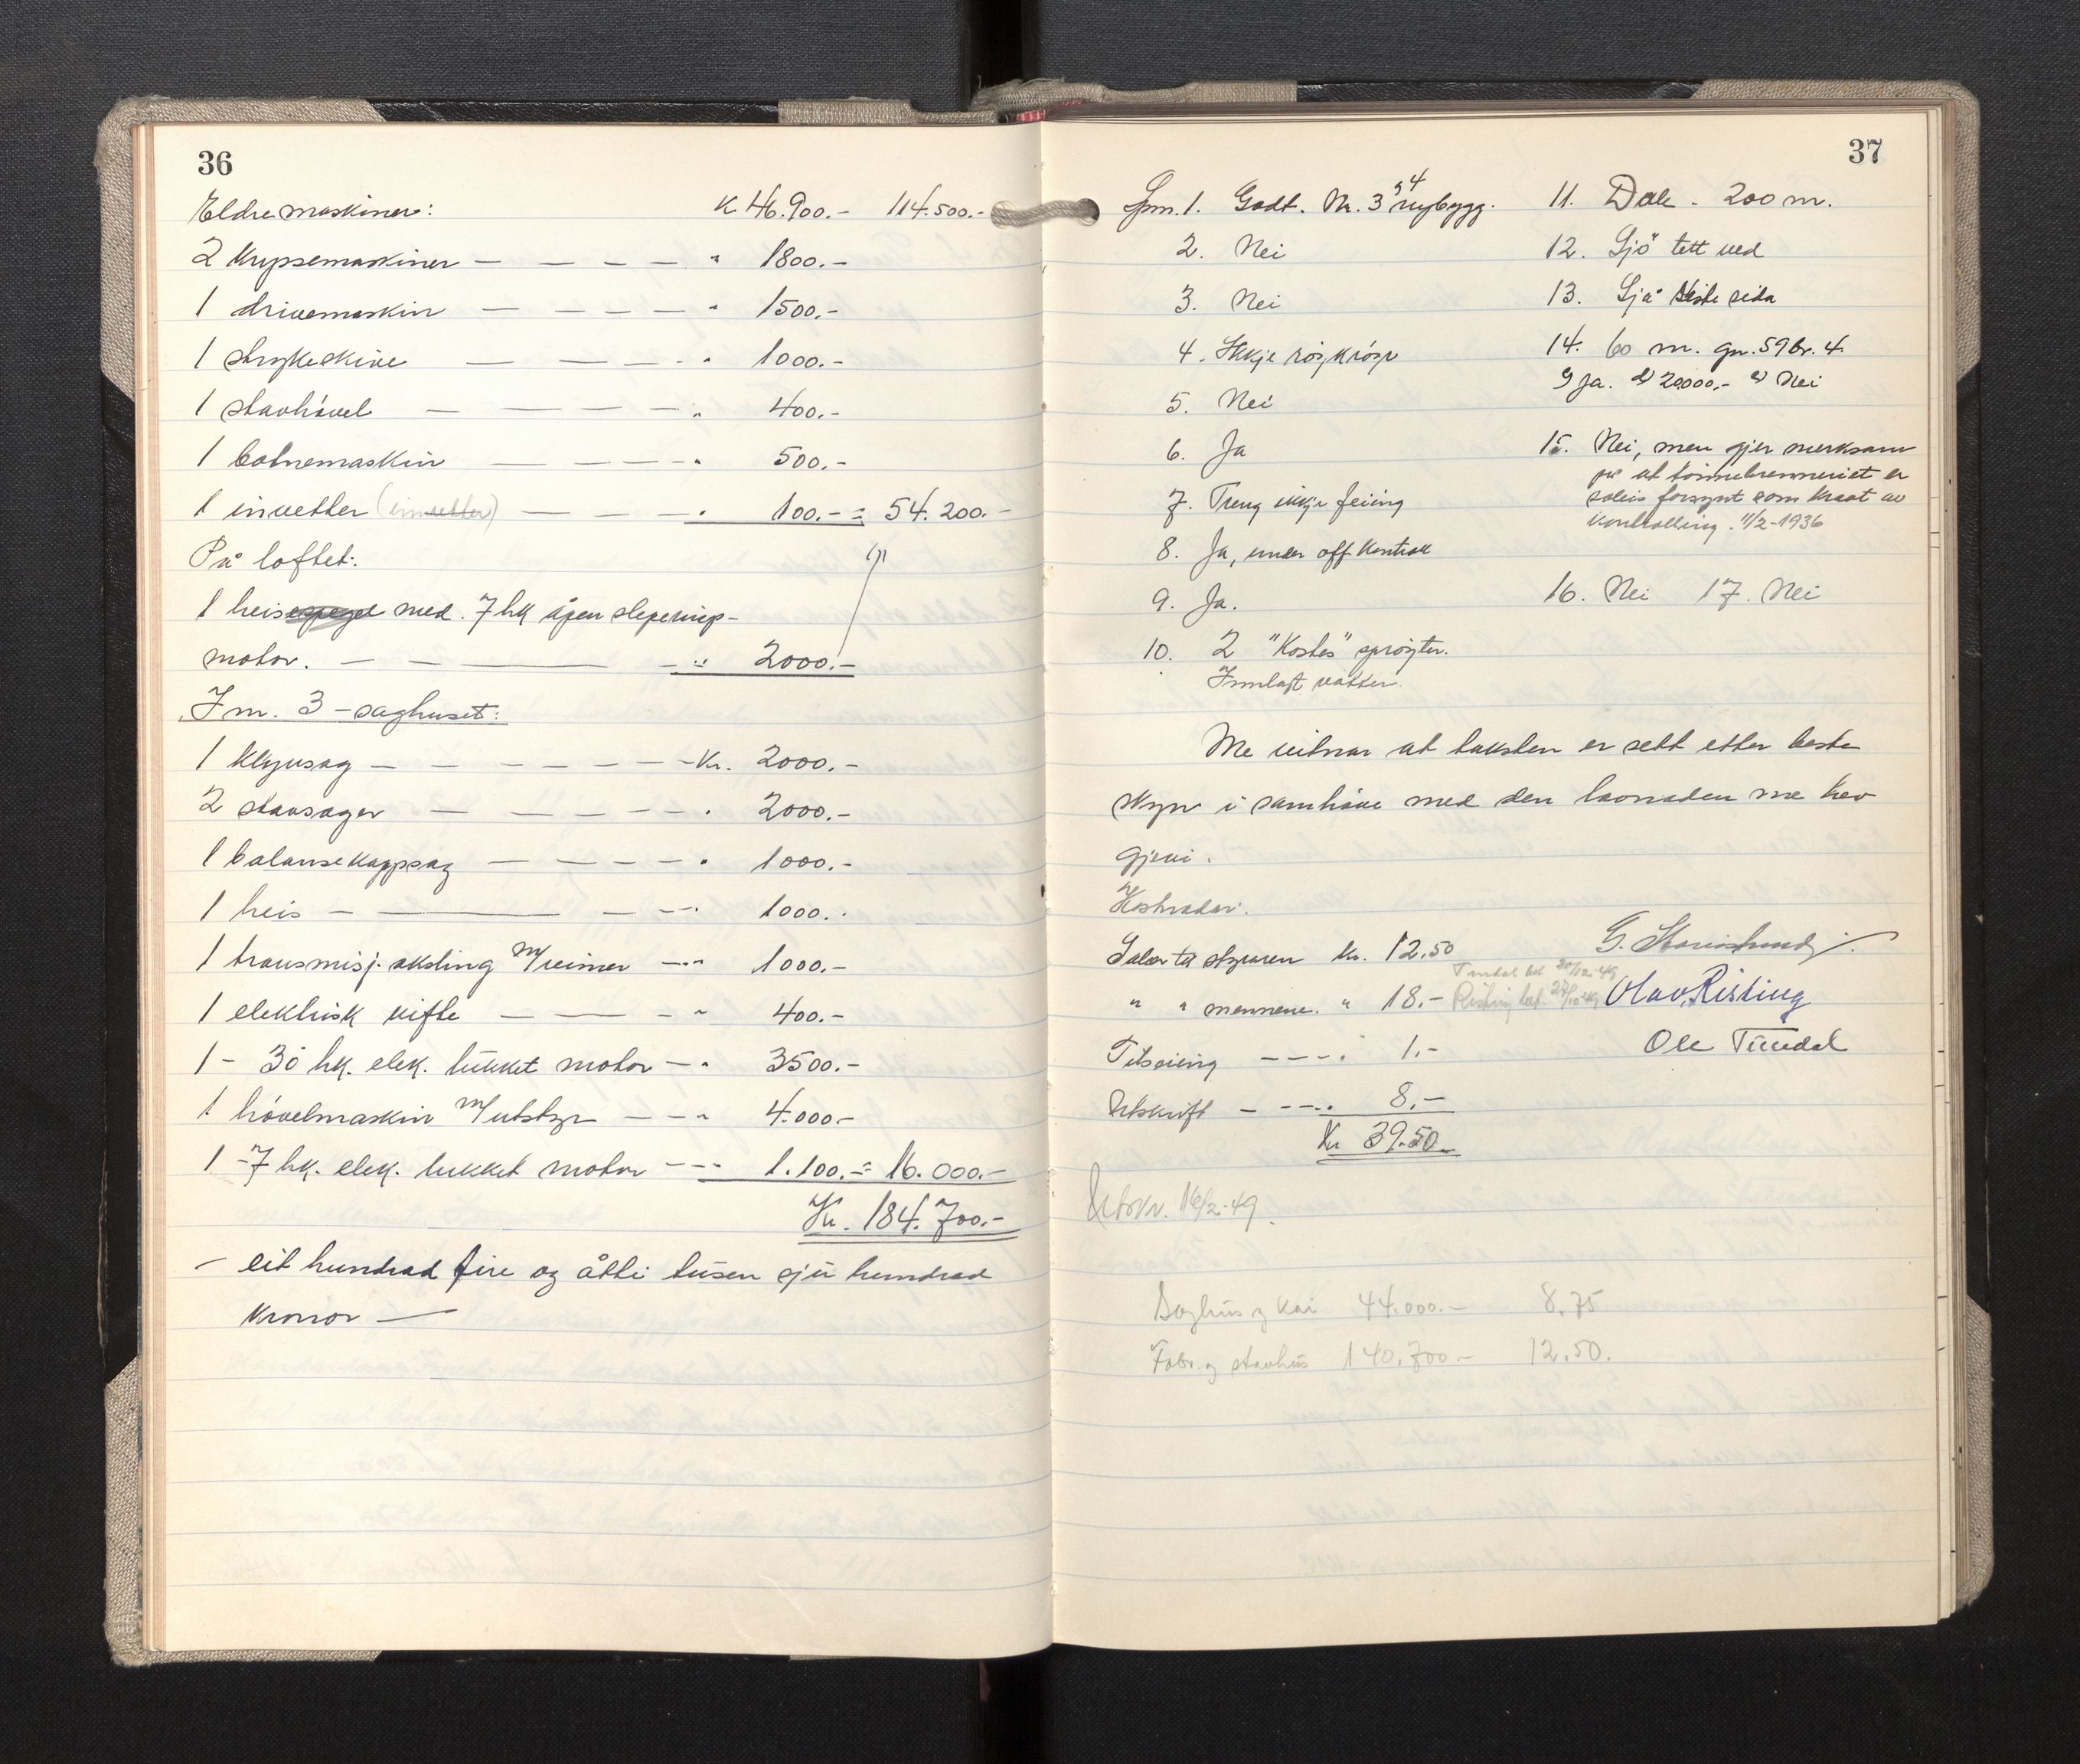 36
Eldre maskiner: K 46.900.- 114.500.-
2 krypsemaskiner — — — — " 1800.-
1 drivemaskin — — — — " 1500.-
1 strykeskive — — — — " 1000.-
1 stavhövel — — — — " 400.-
1 botnemaskin — — — — " 500.-
1 invetter — — — " 100.- = 54.200.-
På loftet:
1 heis med. 7 hk åpen sleperinp-
motor. — — — — " 2000.-
I m. 3 - saghuset:
1 klyvsag — — — — — — Kr. 2000.-
2 stavsager — — — — — " 2000.-
1 balansekappsag — — — — " 1000.-
1 heis — — — — — " 1000.-
1 transmisj. aksling m/reimer — " 1000.-
1 elektrisk vifte — — — " 400.-
1 - 30 hk. elek. lukket motor — " 3500.-
1 hövelmaskin m/utstyr — — " 4.000.-
1 - 7 hk. elek. lukket motor — — 1.100.- = 16.000.-
Kr. 184.700.-
— eit hundrad fire og åtti tusen sju hundrad
kronor —
37
Spm. 1. Godt. Nr. 3 54 nybygg.
2. Nei
3. Nei
4. Ikkje
5. Nei
6. Ja
7. Treng ikkje feiing
8. Ja, under off. kontrak
9. Ja.
10. 2 "Kostes" spröyter.
Innlagt vatten.
11. Dale - 200 m.
12. Sjö tett ved
13. Sjå siste sida
14. 60 m. gn. 59 br. 4.
Ja. 20000,- Nei
15. Nei, men gjer merksam
på at tönnebrenneriet er
soleis forsynt som kravt av
kontrolling. 11/2-1936
16. Nei 17. Nei
Me vitnar at taksten er sett etter beste
skyn i samhöve med den lovnaden me hev
gjevi.
Kostnadar.
Salær til styraren kr. 12.50
" " mennene. " 18.-
Tilseiing — — — " 1.-
Utskrift — — — " 8.-
Kr 39.50
Tundal bet 20/12-49
Risting bet. 27/12-49
Olav Risting
Ole Tundal
Utskr. 16/2-49.
Saghus og kai 44.000.- 8.75
Fabr. og stavhus 140.700.- 12.50.